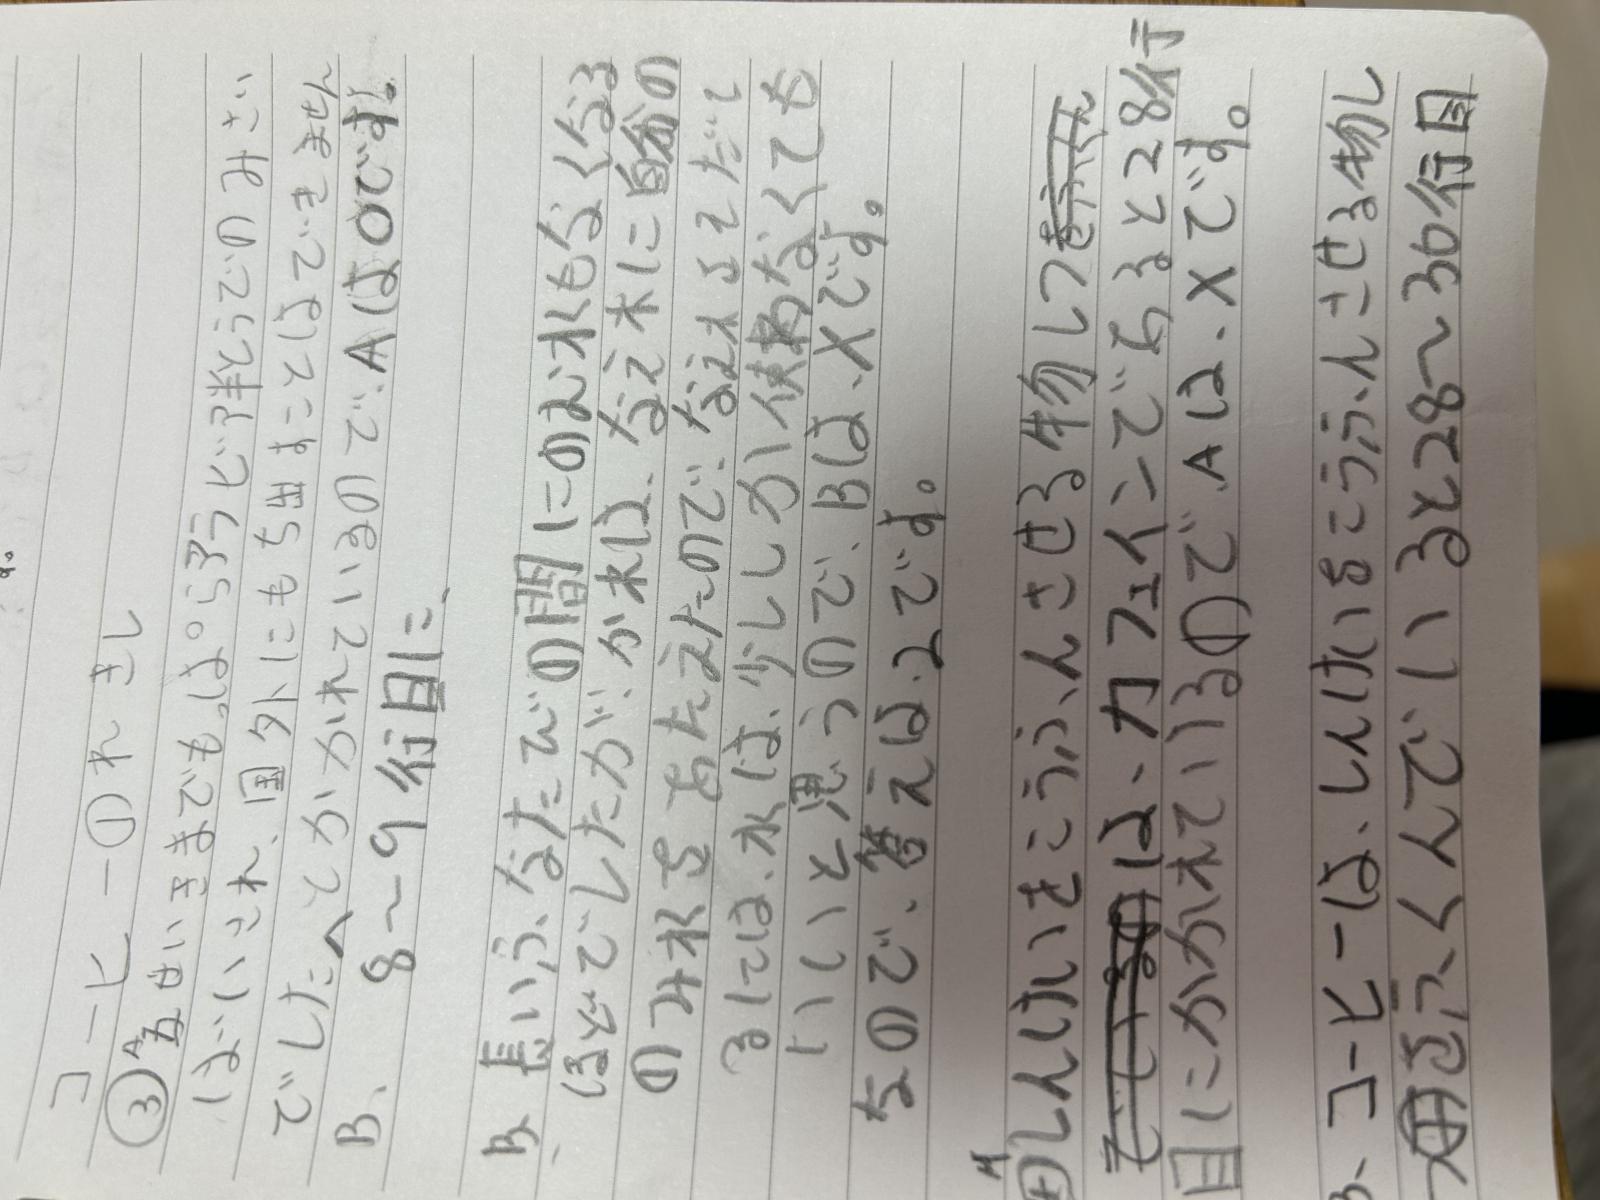 コーヒーのれきし
③A五せいきまでも、ぱらアラビア半とうでのみさい
ばいされ、国外にもち出すことはできません
でしたへとかかれているので、Aは○です。
B、 8〜9行目に、
B、長いふなたびの間にのむ水もなくなる
ほどでしたが、かれは、なえ木に自分の
のみ水をあたえたので、なえ木よそだて
るには、水は、少ししか使わなくても
いいと思うので、Bは、Xです。
なので、答えは、2です。
④Aしんけいをこうふんさせる物しつ
は、カフェインであると28行
目にかかれているので、Aは、Xです。
B、コーヒーは、しんけいをこうふんさせる物し
ふくんでいると28〜30行目